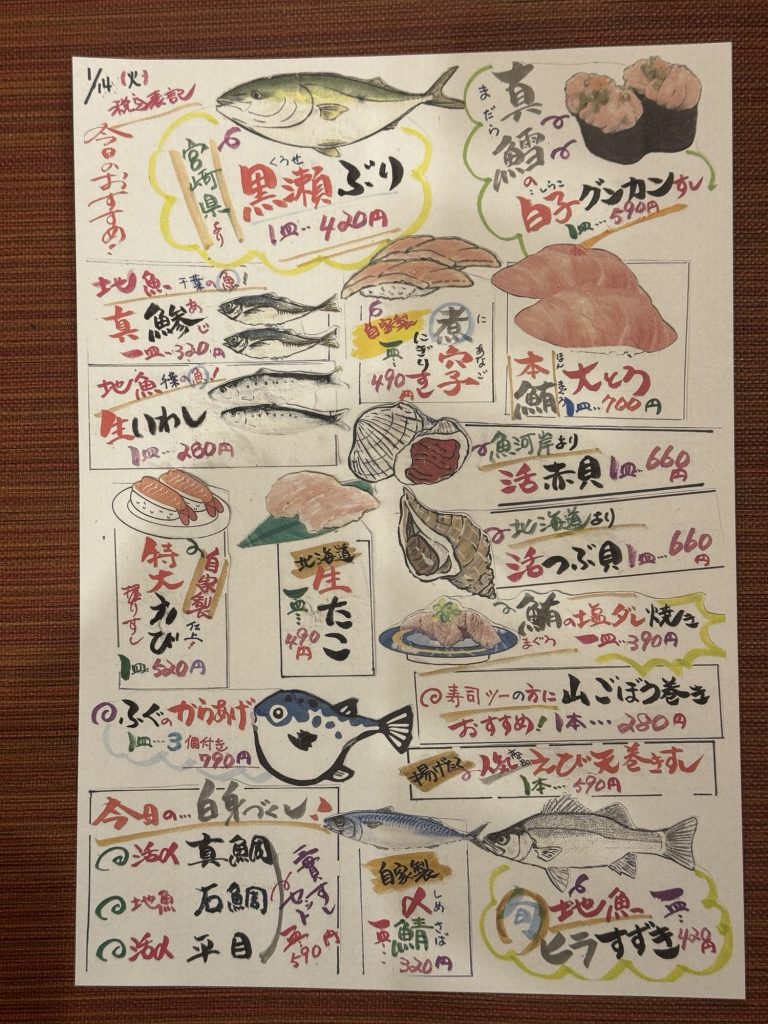 1/14(火)
税込表記
今日のおすすめ!
宮崎県より
くろせ
黒瀬ぶり
1皿…420円
まだら
真鱈の
しらこ
白子グンカンすし
1皿…590円
地魚 千葉の魚!
あじ
真鯵
一皿…320円
地魚 千葉の魚!
生いわし
1皿…280円
自家製
に あなご
煮穴子
にぎりすし
一皿…490円
ほんまぐろ
本鮪 大とろ
1皿…700円
魚河岸より
活赤貝 1皿…660円
北海道より
活つぶ貝 1皿…660円
自家製仕上
特大えび
握りすし
1皿…520円
北海道
生たこ
一皿…490円
鮪の塩ダレ焼き
まぐろ
一皿…390円
寿司ツーの方に
おすすめ!
山ごぼう巻き
1本…280円
ふぐのからあげ
1皿…3個付き
790円
揚げたて
人気商品
えび天巻きすし
1本…590円
今日の…白身づくし!
活〆 真鯛
地魚 石鯛
活〆 平目
三貫すし
セット
一皿…590円
自家製
しめさば
〆鯖
一皿…320円
旬 地魚
ヒラすずき
一皿…420円